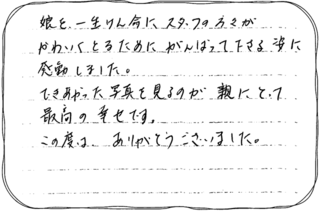 娘を一生けん命にスタッフの方々が
かわいくとるためにがんばって下さる姿に
感動しました。
できあがった写真を見るのが親にとって
最高の幸せです。
この度は、ありがとうございました。